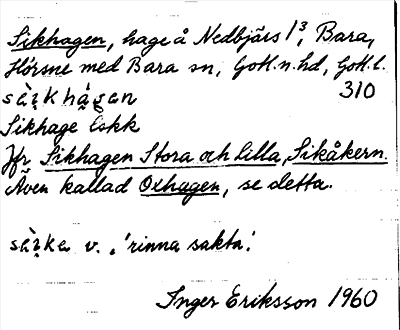 Sikhagen, hage å Nedbjärs 1³, Bara,
Hörsne med Bara sn, Gotl.n.hd, Gotl.l.
310
Sikhage Eskk
Jfr Sikhagen Stora och Lilla, Sikåkern.
Även kallad Oxhagen, se detta.
v. 'rinna sakta'.
Inger Eriksson 1960